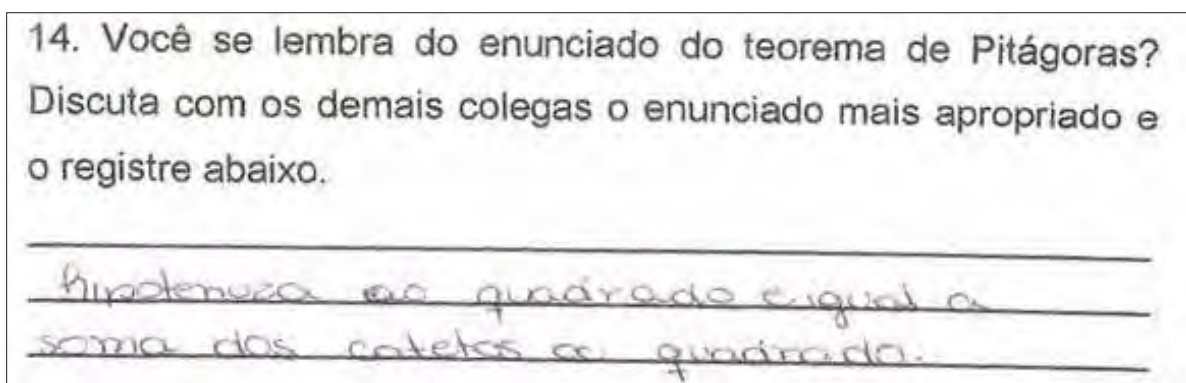 14. Você se lembra do enunciado do teorema de Pitágoras?
Discuta com os demais colegas o enunciado mais apropriado e
o registre abaixo.
hipotenusa ao quadrado e igual a
soma dos catetos a quadrado.